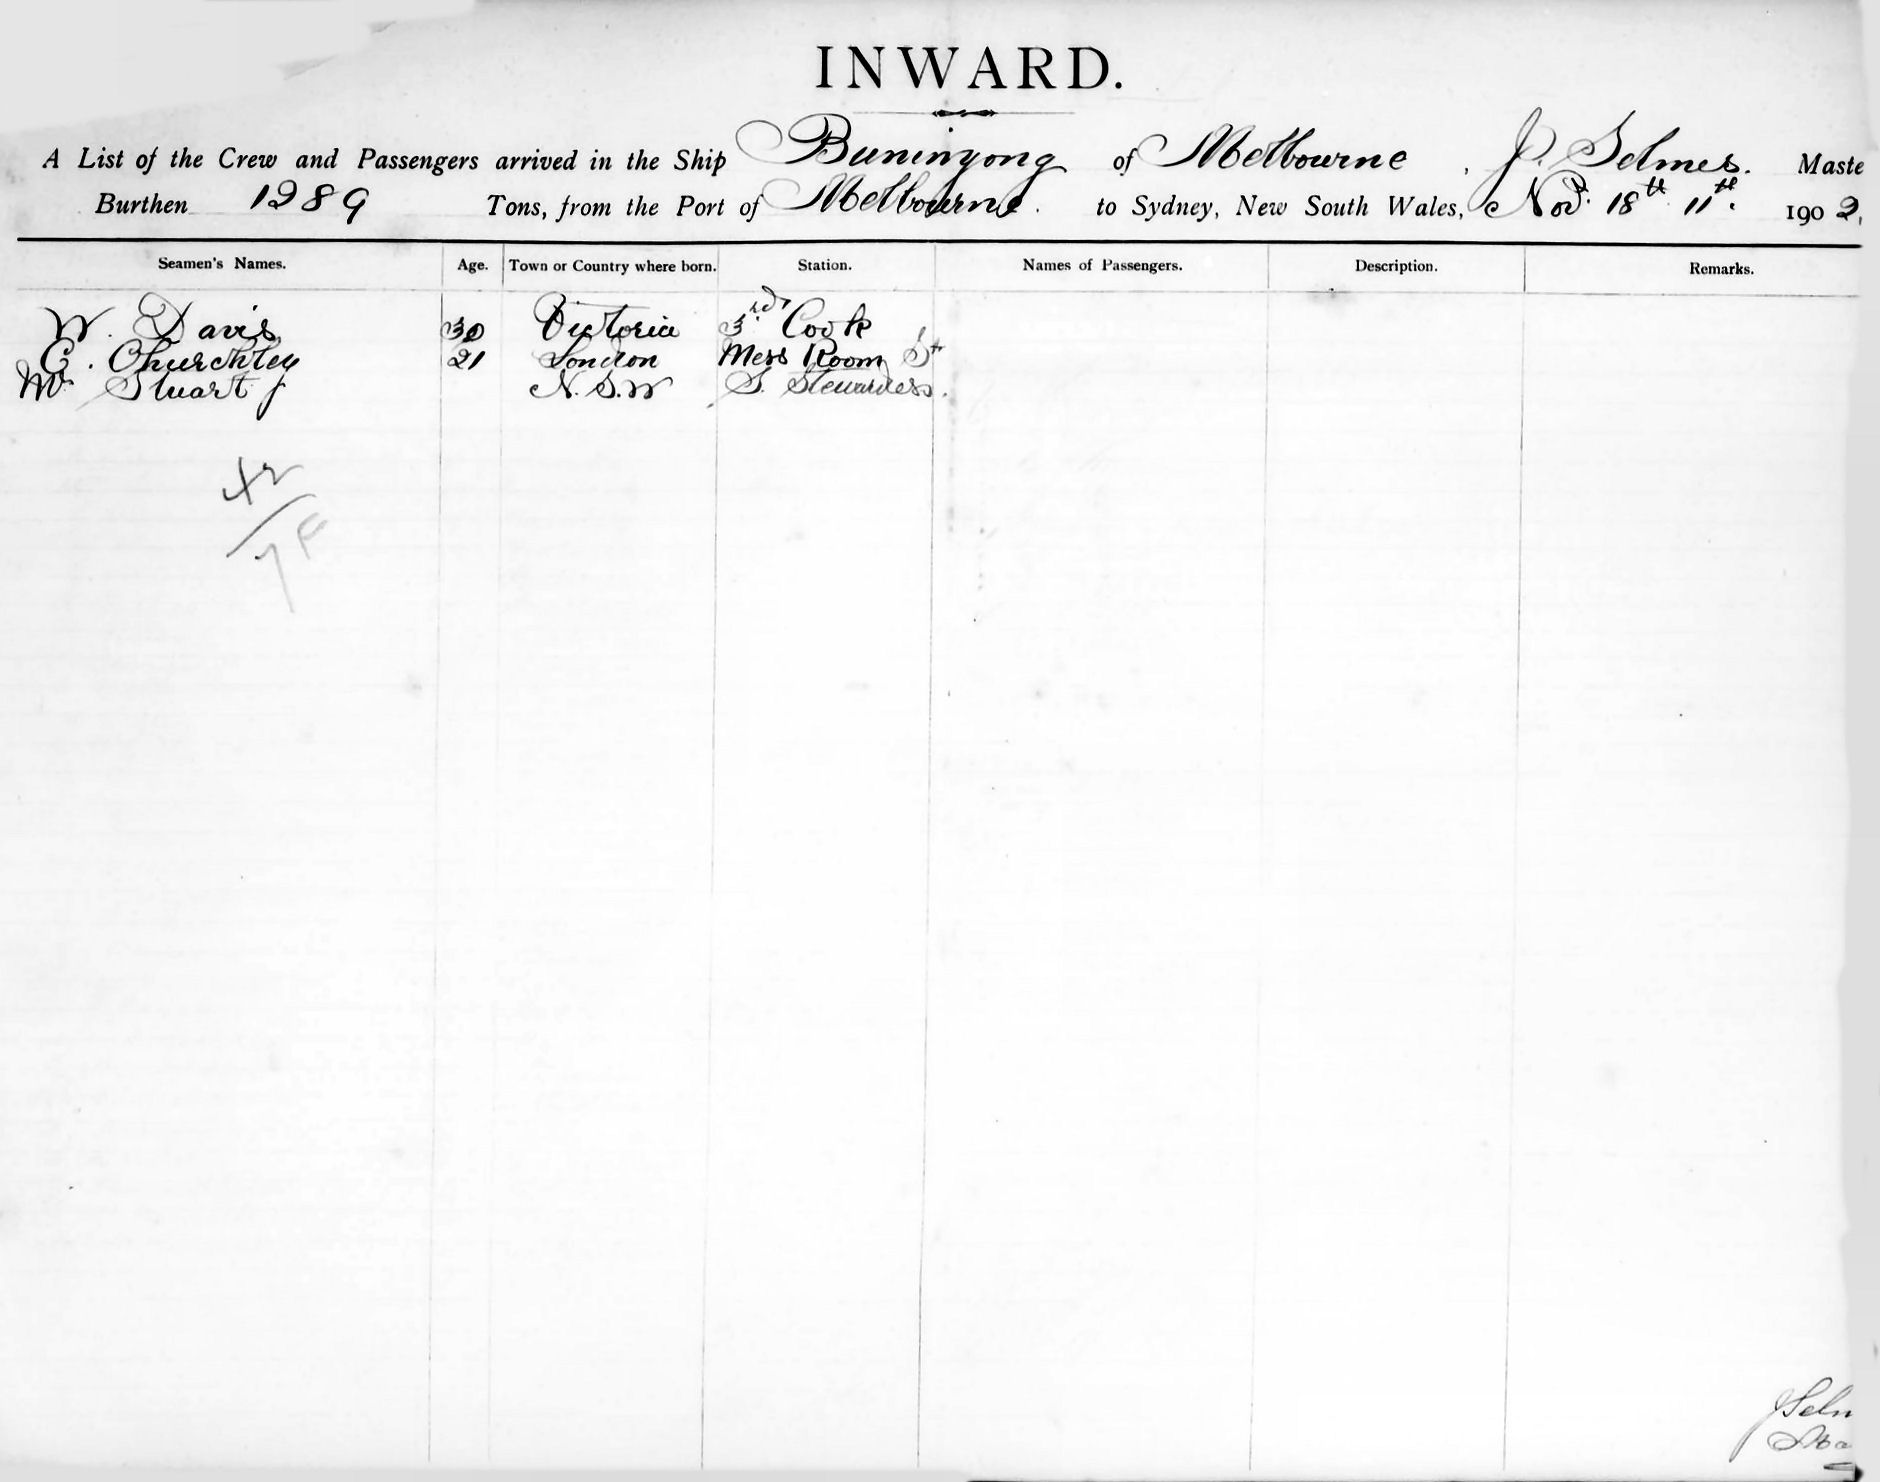 INWARD.
A List of the Crew and Passengers arrived in the Ship Buninyong of Melbourne, J. Selmes. Maste
Burthen 1289 Tons, from the Port of Melbourne. to Sydney, New South Wales, Nov. 18th 11th. 1902,
Seamen's Names. Age. Town or Country where born. Station. Names of Passengers. Description. Remarks.
W. Davis 30 Victoria 3rd Cook
C. Churchley 21 London Mess Room St
Stuart N.S.W S. Stewardess.
42
7
J Seln
Ma